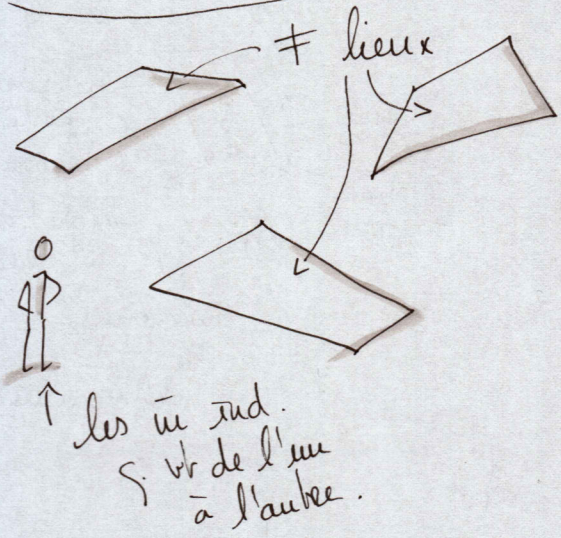 ≠ lieux
les m̄ ind.
vt de l'un
à l'autre.